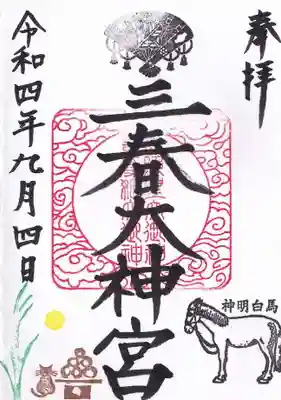 奉拝
三春大神宮
令和四年九月四日
神明白馬